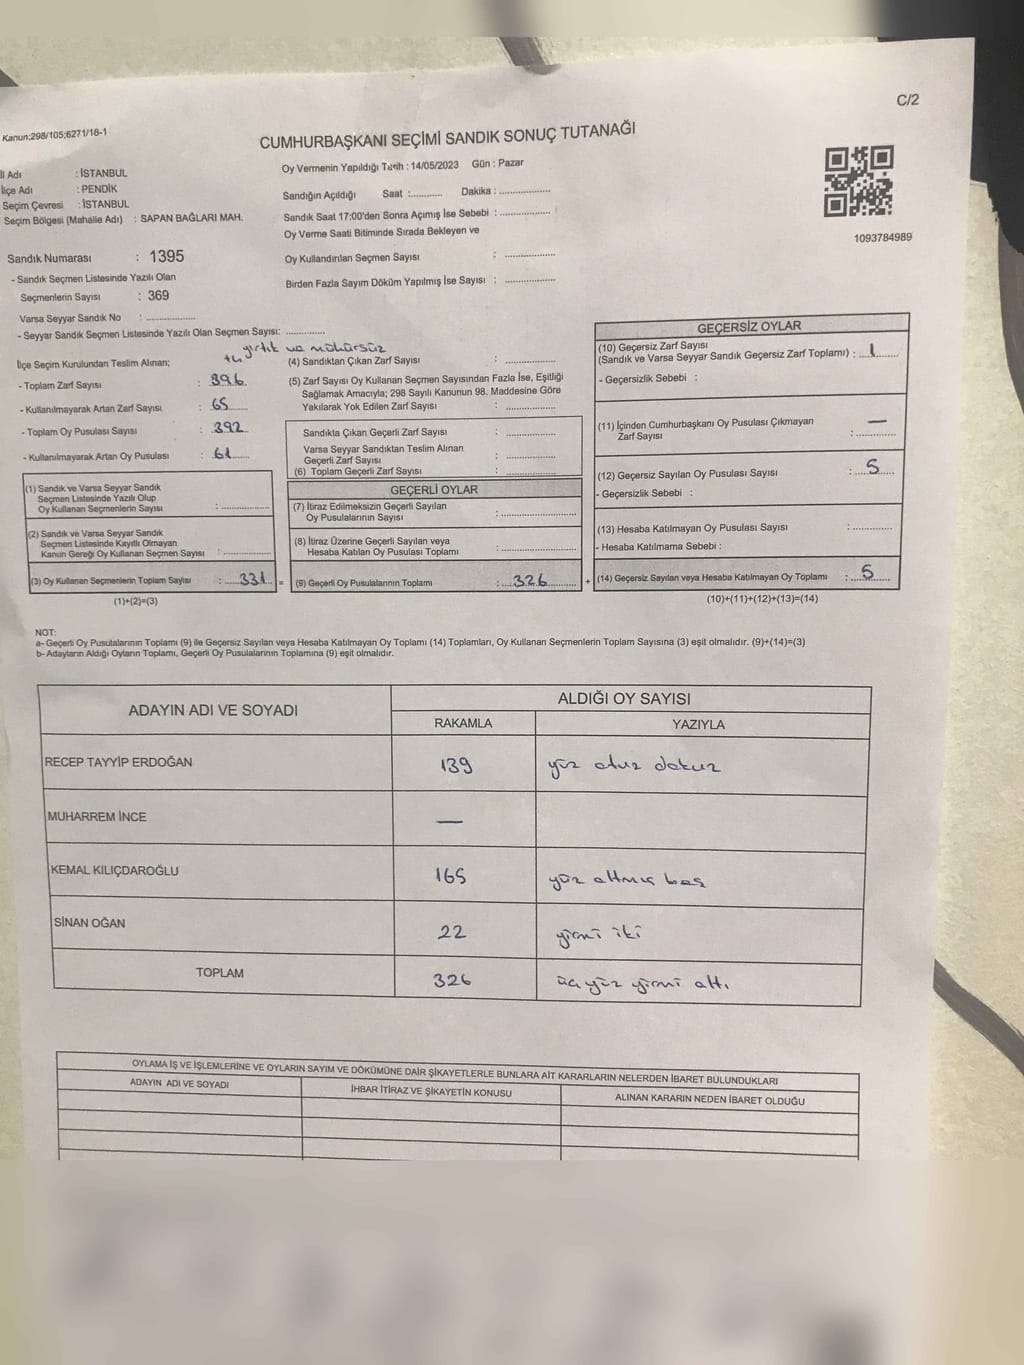 C/2
Kanun;298/105;6271/18-1
CUMHURBAŞKANI SEÇİMİ SANDIK SONUÇ TUTANAĞI
Oy Vermenin Yapıldığı Tarih : 14/05/2023 Gün : Pazar
İl Adı : İSTANBUL
İlçe Adı : PENDİK
Seçim Çevresi : İSTANBUL
Seçim Bölgesi (Mahalle Adı) : SAPAN BAĞLARI MAH.
Sandığın Açıldığı Saat :........... Dakika : ..................
Sandık Saat 17:00'den Sonra Açımış İse Sebebi : ..................
Oy Verme Saati Bitiminde Sırada Bekleyen ve
Oy Kullandırılan Seçmen Sayısı : ..................
Birden Fazla Sayım Döküm Yapılmış İse Sayısı : ..................
1093784989
Sandık Numarası : 1395
- Sandık Seçmen Listesinde Yazılı Olan
Seçmenlerin Sayısı : 369
Varsa Seyyar Sandık No : ..................
- Seyyar Sandık Seçmen Listesinde Yazılı Olan Seçmen Sayısı: ..............
yırtık ve mühürsüz
İlçe Seçim Kurulundan Teslim Alınan;
- Toplam Zarf Sayısı : 396
- Kullanılmayarak Artan Zarf Sayısı : 65
- Toplam Oy Pusulası Sayısı : 392
- Kullanılmayarak Artan Oy Pusulası : 61
(1) Sandık ve Varsa Seyyar Sandık
Seçmen Listesinde Yazılı Olup
Oy Kullanan Seçmenlerin Sayısı : ..................
(2) Sandık ve Varsa Seyyar Sandık
Seçmen Listesinde Kayıtlı Olmayan
Kanun Gereği Oy Kullanan Seçmen Sayısı : ..................
(3) Oy Kullanan Seçmenlerin Toplam Sayısı : 331 =
(1)+(2)=(3)
(4) Sandıktan Çıkan Zarf Sayısı : ..................
(5) Zarf Sayısı Oy Kullanan Seçmen Sayısından Fazla İse, Eşitliği
Sağlamak Amacıyla; 298 Sayılı Kanunun 98. Maddesine Göre
Yakılarak Yok Edilen Zarf Sayısı : ..................
Sandıkta Çıkan Geçerli Zarf Sayısı : ..................
Varsa Seyyar Sandıktan Teslim Alınan
Geçerli Zarf Sayısı : ..................
(6) Toplam Geçerli Zarf Sayısı : ..................
GEÇERLİ OYLAR
(7) İtiraz Edilmeksizin Geçerli Sayılan
Oy Pusulalarının Sayısı : ..................
(8) İtiraz Üzerine Geçerli Sayılan veya
Hesaba Katılan Oy Pusulası Toplamı : ..................
(9) Geçerli Oy Pusulalarının Toplamı : 326 +
GEÇERSİZ OYLAR
(10) Geçersiz Zarf Sayısı
(Sandık ve Varsa Seyyar Sandık Geçersiz Zarf Toplamı) : 1
- Geçersizlik Sebebi :
(11) İçinden Cumhurbaşkanı Oy Pusulası Çıkmayan
Zarf Sayısı : —
(12) Geçersiz Sayılan Oy Pusulası Sayısı : 5
- Geçersizlik Sebebi :
(13) Hesaba Katılmayan Oy Pusulası Sayısı : ..............
- Hesaba Katılmama Sebebi :
(14) Geçersiz Sayılan veya Hesaba Katılmayan Oy Toplamı : 5
(10)+(11)+(12)+(13)=(14)
NOT:
a- Geçerli Oy Pusulalarının Toplamı (9) ile Geçersiz Sayılan veya Hesaba Katılmayan Oy Toplamı (14) Toplamları, Oy Kullanan Seçmenlerin Toplam Sayısına (3) eşit olmalıdır. (9)+(14)=(3)
b- Adayların Aldığı Oyların Toplamı, Geçerli Oy Pusulalarının Toplamına (9) eşit olmalıdır.
ADAYIN ADI VE SOYADI ALDIĞI OY SAYISI
RAKAMLA YAZIYLA
RECEP TAYYİP ERDOĞAN 139 yüz otuz dokuz
MUHARREM İNCE —
KEMAL KILIÇDAROĞLU 165 yüz altmış beş
SİNAN OĞAN 22 yirmi iki
TOPLAM 326 üç yüz yirmi altı
OYLAMA İŞ VE İŞLEMLERİNE VE OYLARIN SAYIM VE DÖKÜMÜNE DAİR ŞİKAYETLERLE BUNLARA AİT KARARLARIN NELERDEN İBARET BULUNDUKLARI
ADAYIN ADI VE SOYADI İHBAR İTİRAZ VE ŞİKAYETİN KONUSU ALINAN KARARIN NEDEN İBARET OLDUĞU